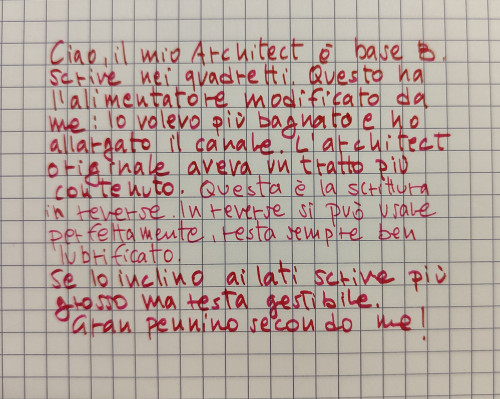 Ciao, il mio Architect è base B.
scrive nei quadretti. Questo ha
l'alimentatore modificato da
me: lo volevo più bagnato e ho
allargato il canale. L'architect
originale aveva un tratto più
contenuto. Questa è la scrittura
in reverse. In reverse si può usare
perfettamente, resta sempre ben
lubrificato.
Se lo inclino ai lati scrive più
grosso ma resta gestibile.
Gran pennino secondo me!